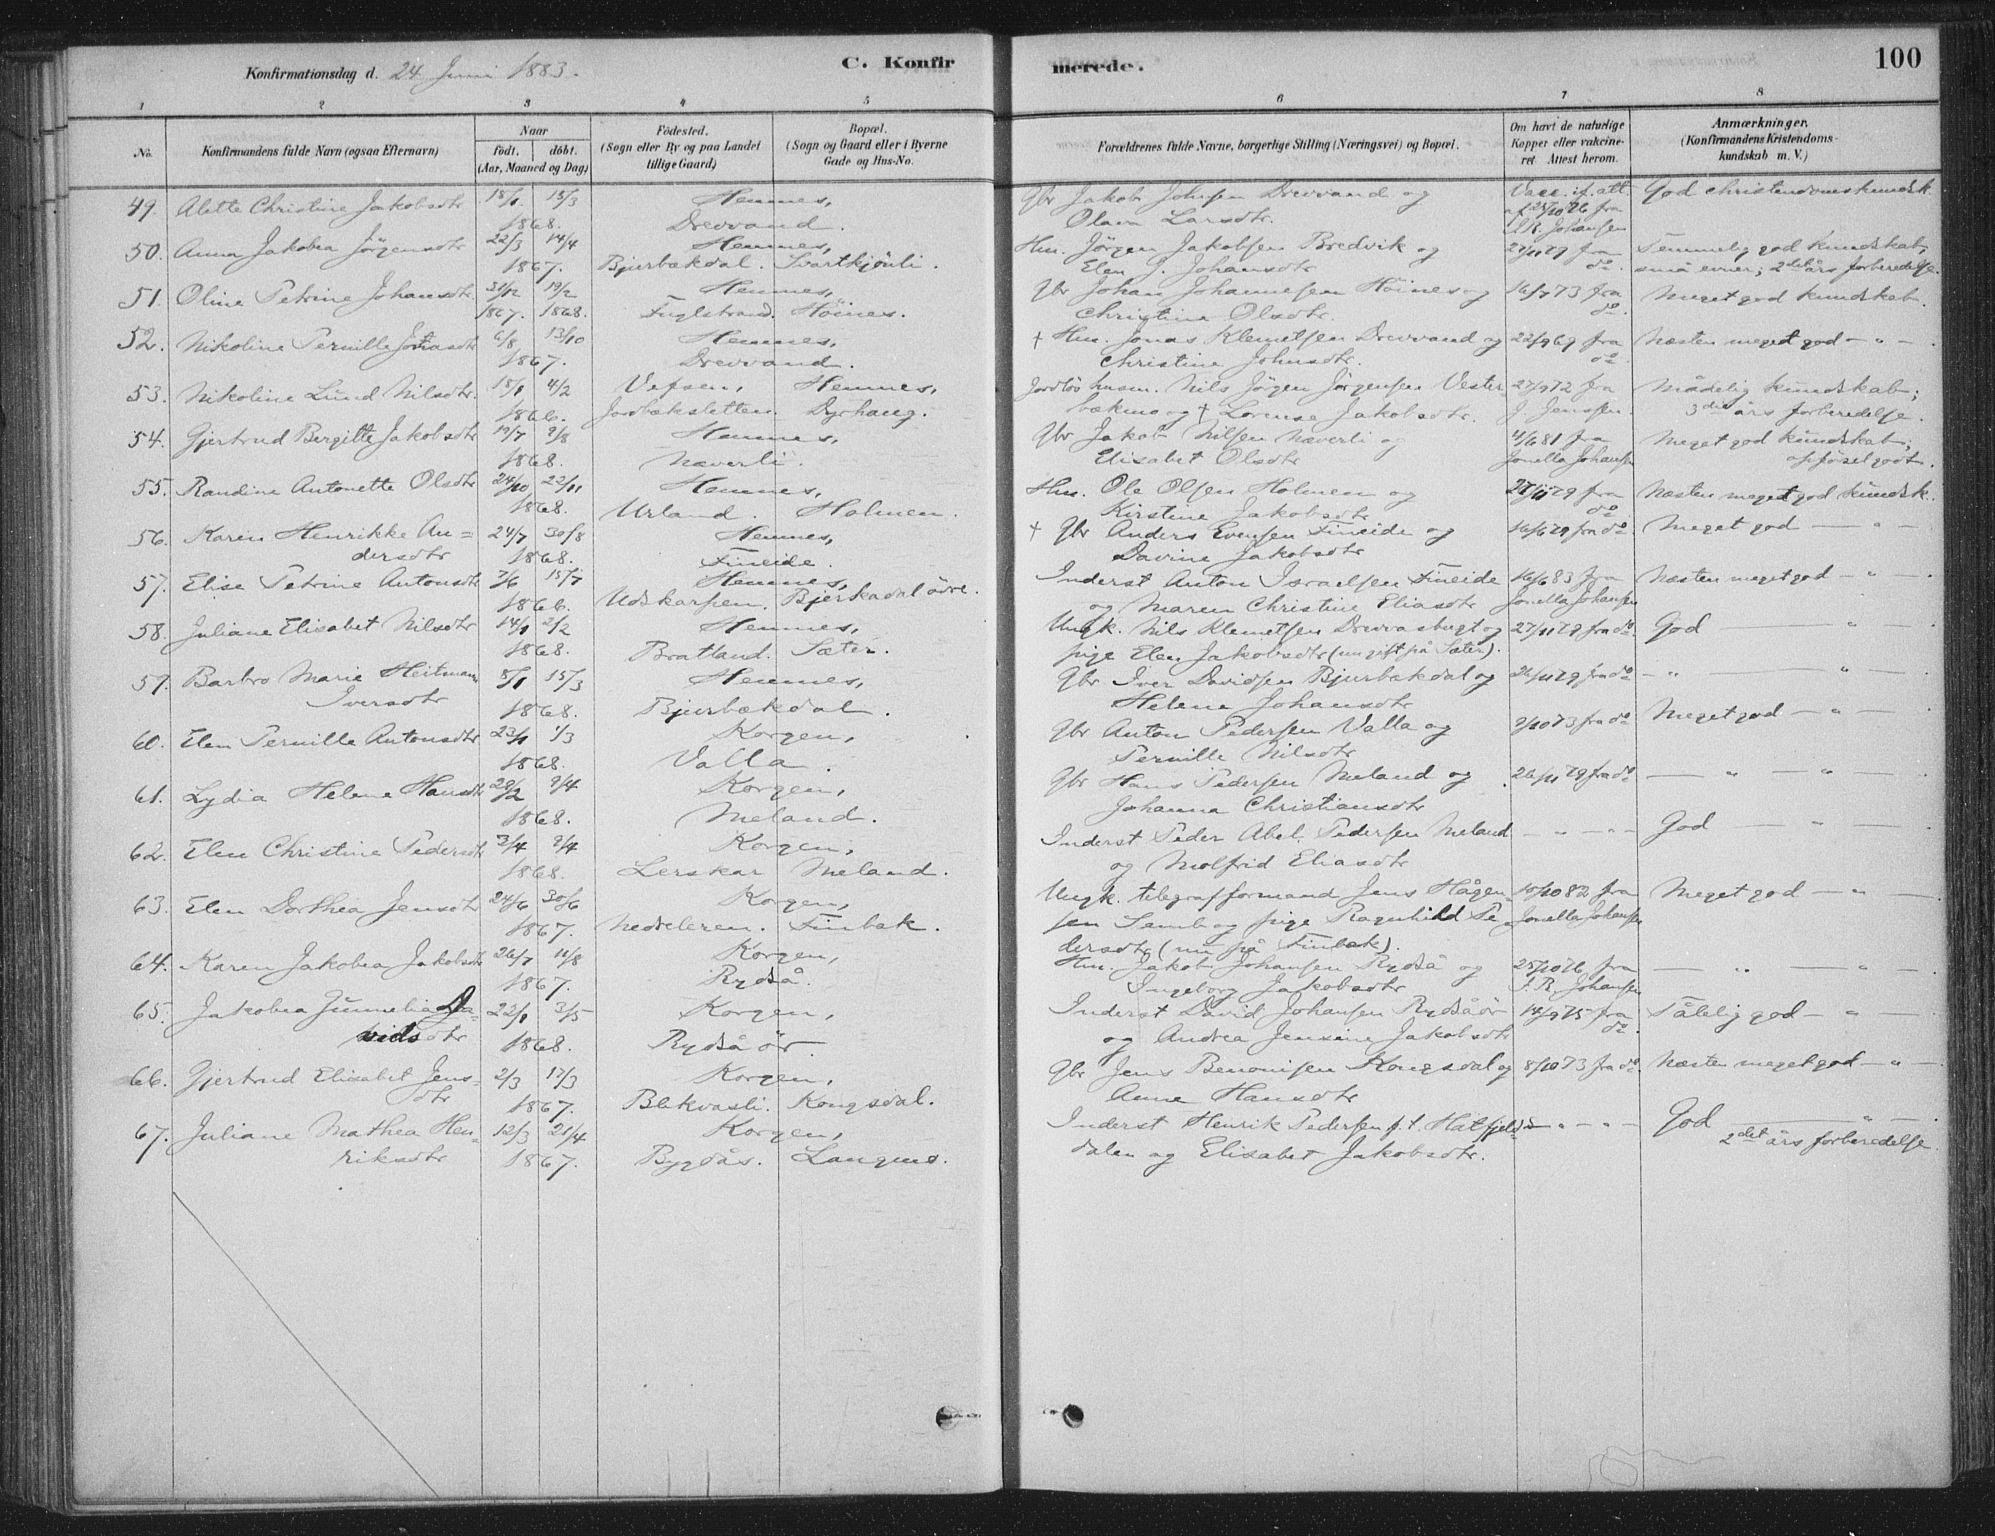 Konfirmationsdag d. 24 Juni 1883.
C. Konfirmerede.
100
1 2 3 4 5 6 7 8
No.
Konfirmandens fulde Navn (ogsaa Efternavn)
Naar
født. døbt.
(Aar, Maaned og Dag)
Fødested.
(Sogn eller By og paa Landet
tillige Gaard)
Bopæl.
(Sogn og Gaard eller i Byerne
Gade og Hus-No.
Forældrenes fulde Navne, borgerlige Stilling (Næringsvei) og Bopæl.
Om havt de naturlige
Kopper eller vakcine-
ret Attest herom.
Anmærkninger.
(Konfirmandens Kristendoms-
kundskab m. V.)
49. Alette Christine Jakobsdtr 18/1 15/3 Hemnes, Gbr Jakob Johnsen Drevvand og Vacc. if. att. God christendomskundsk.
1868. Drevvand. Olava Larsdtr. af 25/10 76 fra
J. R. Johansen
50. Anna Jakobea Jörgensdtr 22/3 14/4 Hemnes, Hm. Jörgen Jakobsen Bredvik og 27/11 79 fra Temmelig god kundskab,
1867. Bjurbækdal. Svartkjönli. Elen J. Johansdtr do. små evner; 2det års forberedelse.
51. Oline Petrine Johansdtr. 31/12 19/2 Hemnes, Gbr Johan Johannesen Höines og 16/7 73 fra Meget god kundskab.
1867. 1868. Fuglstrand. Höines. Christine Olsdtr. do.
52. Nikoline Pernille Jonasdtr 6/8 13/10 Hemnes, + Hm. Jonas Klemetsen Drevvand og 22/9 69 fra Næsten meget god - " -
1867. Drevvand. Christine Johnsdtr. do.
53. Nikoline Lund Nilsdtr. 18/1 4/2 Vefsen, Hemnes, Jordlös husm. Nils Jörgen Jörgensen Vester- 27/9 72 fra Mådelig kundskab;
1866. Jordbækslettен. Dyrhaug. bækmo og + Lorense Jakobsdtr. J. Jenssen. 3die års forberedelse.
54. Gjertrud Bergitte Jakobsdtr 19/7 9/8 Hemnes, Gbr Jakob Nilsen Næverli og 4/6 81 fra Meget god kundskab,
1868. Næverli. Elisabet Olsdtr Jonella Johansen opførsel godt.
55. Randine Antonette Olsdtr 24/10 22/11 Hemnes, Hm. Ole Olsen Holmen og 27/11 79 fra Næsten meget god kundsk.
1868. Urland. Holmen. Kirstine Jakobsdtr do
56. Karen Henrikke An- 24/7 30/8 Hemnes, + Gbr Anders Evensen Fineide og 16/6 79 fra do. Meget god - " -
dersdtr 1868. Fineide. Davine Jakobsdtr
57. Elise Petrine Antonsdtr 7/6 15/7 Hemnes, Inderst Anton Israelsen Fineide 16/6 83 fra Næsten meget god - " -
1866. Udskarpen. Bjerkadal övre. og Maren Christine Eliasdtr Jonella Johansen
58. Juliane Elisabet Nilsdtr 14/1 2/2 Hemnes, Ungk. Nils Klemetsen Drevvasbugt og 27/11 79 fra do. God - " -
1868. Bratland. Sæter. pige Elen Jakobsdtr (nu gift på Sæter).
59. Barbro Marie Heitmann 8/1 15/3 Hemnes, Gbr Iver Davidsen Bjurbækdal og 26/11 79 fra do - " - " -
Iversdtr 1868. Bjurbækdal. Helena Johansdtr
60. Elen Pernille Antonsdtr 23/1 1/3 Korgen, Gbr Anton Pedersen Valla og 9/10 73 fra do Meget god - " -
1868. Valla. Pernille Nilsdtr
61. Lydia Helene Hansdtr 28/2 9/4 Korgen, Gbr Hans Pedersen Meland og 26/11 79 fra do - " - " -
1868. Meland. Johanna Christiansdtr
62. Elen Christine Pedersdtr 3/4 9/4 Korgen, Inderst Peder Abel Pedersen Meland - " - " - God - " -
1868. Lerskar Meland. og Molfrid Eliasdtr
63. Elen Dorthea Jensdtr 24/6 30/6 Korgen, Ungk. telegrafformand Jens Hågen- 10/10 82 fra Meget god - " -
1867. Nedreleren. Finbak. sen Semb og pige Ragnhild Pe- Jonella Johansen
dersdtr (nu på Finbak).
64. Karen Jakobea Jakobsdtr 26/7 11/8 Korgen, Hm. Jakob Johansen Rydså og 25/10 76 fra - " - " -
1867. Rydså. Ingeborg Jakobsdtr J. R. Johansen
65. Jakobea Gunnelia Da- 22/1 3/5 Korgen, Inderst David Johansen Rydsåör 14/9 75 fra Tålelig god - " -
vidsdtr 1868. Rydsåör. og Andrea Jensine Jakobsdtr do
66. Gjertrud Elisabet Jens- 2/3 13/3 Korgen, Gbr Jens Benonisen Kongsdal og 8/10 73 fra do. Næsten meget god - " -
dtr 1867. Blikvasli. Kongsdal. Anne Hansdtr
67. Juliane Mathea Hen- 12/3 21/4 Korgen, Inderst Henrik Pedersen f. t. Hatfjeld- - " - " - God - " -
riksdtr 1867. Bygdås. Langnes. dalen og Elisabet Jakobsdtr. 2det års forberedelse.